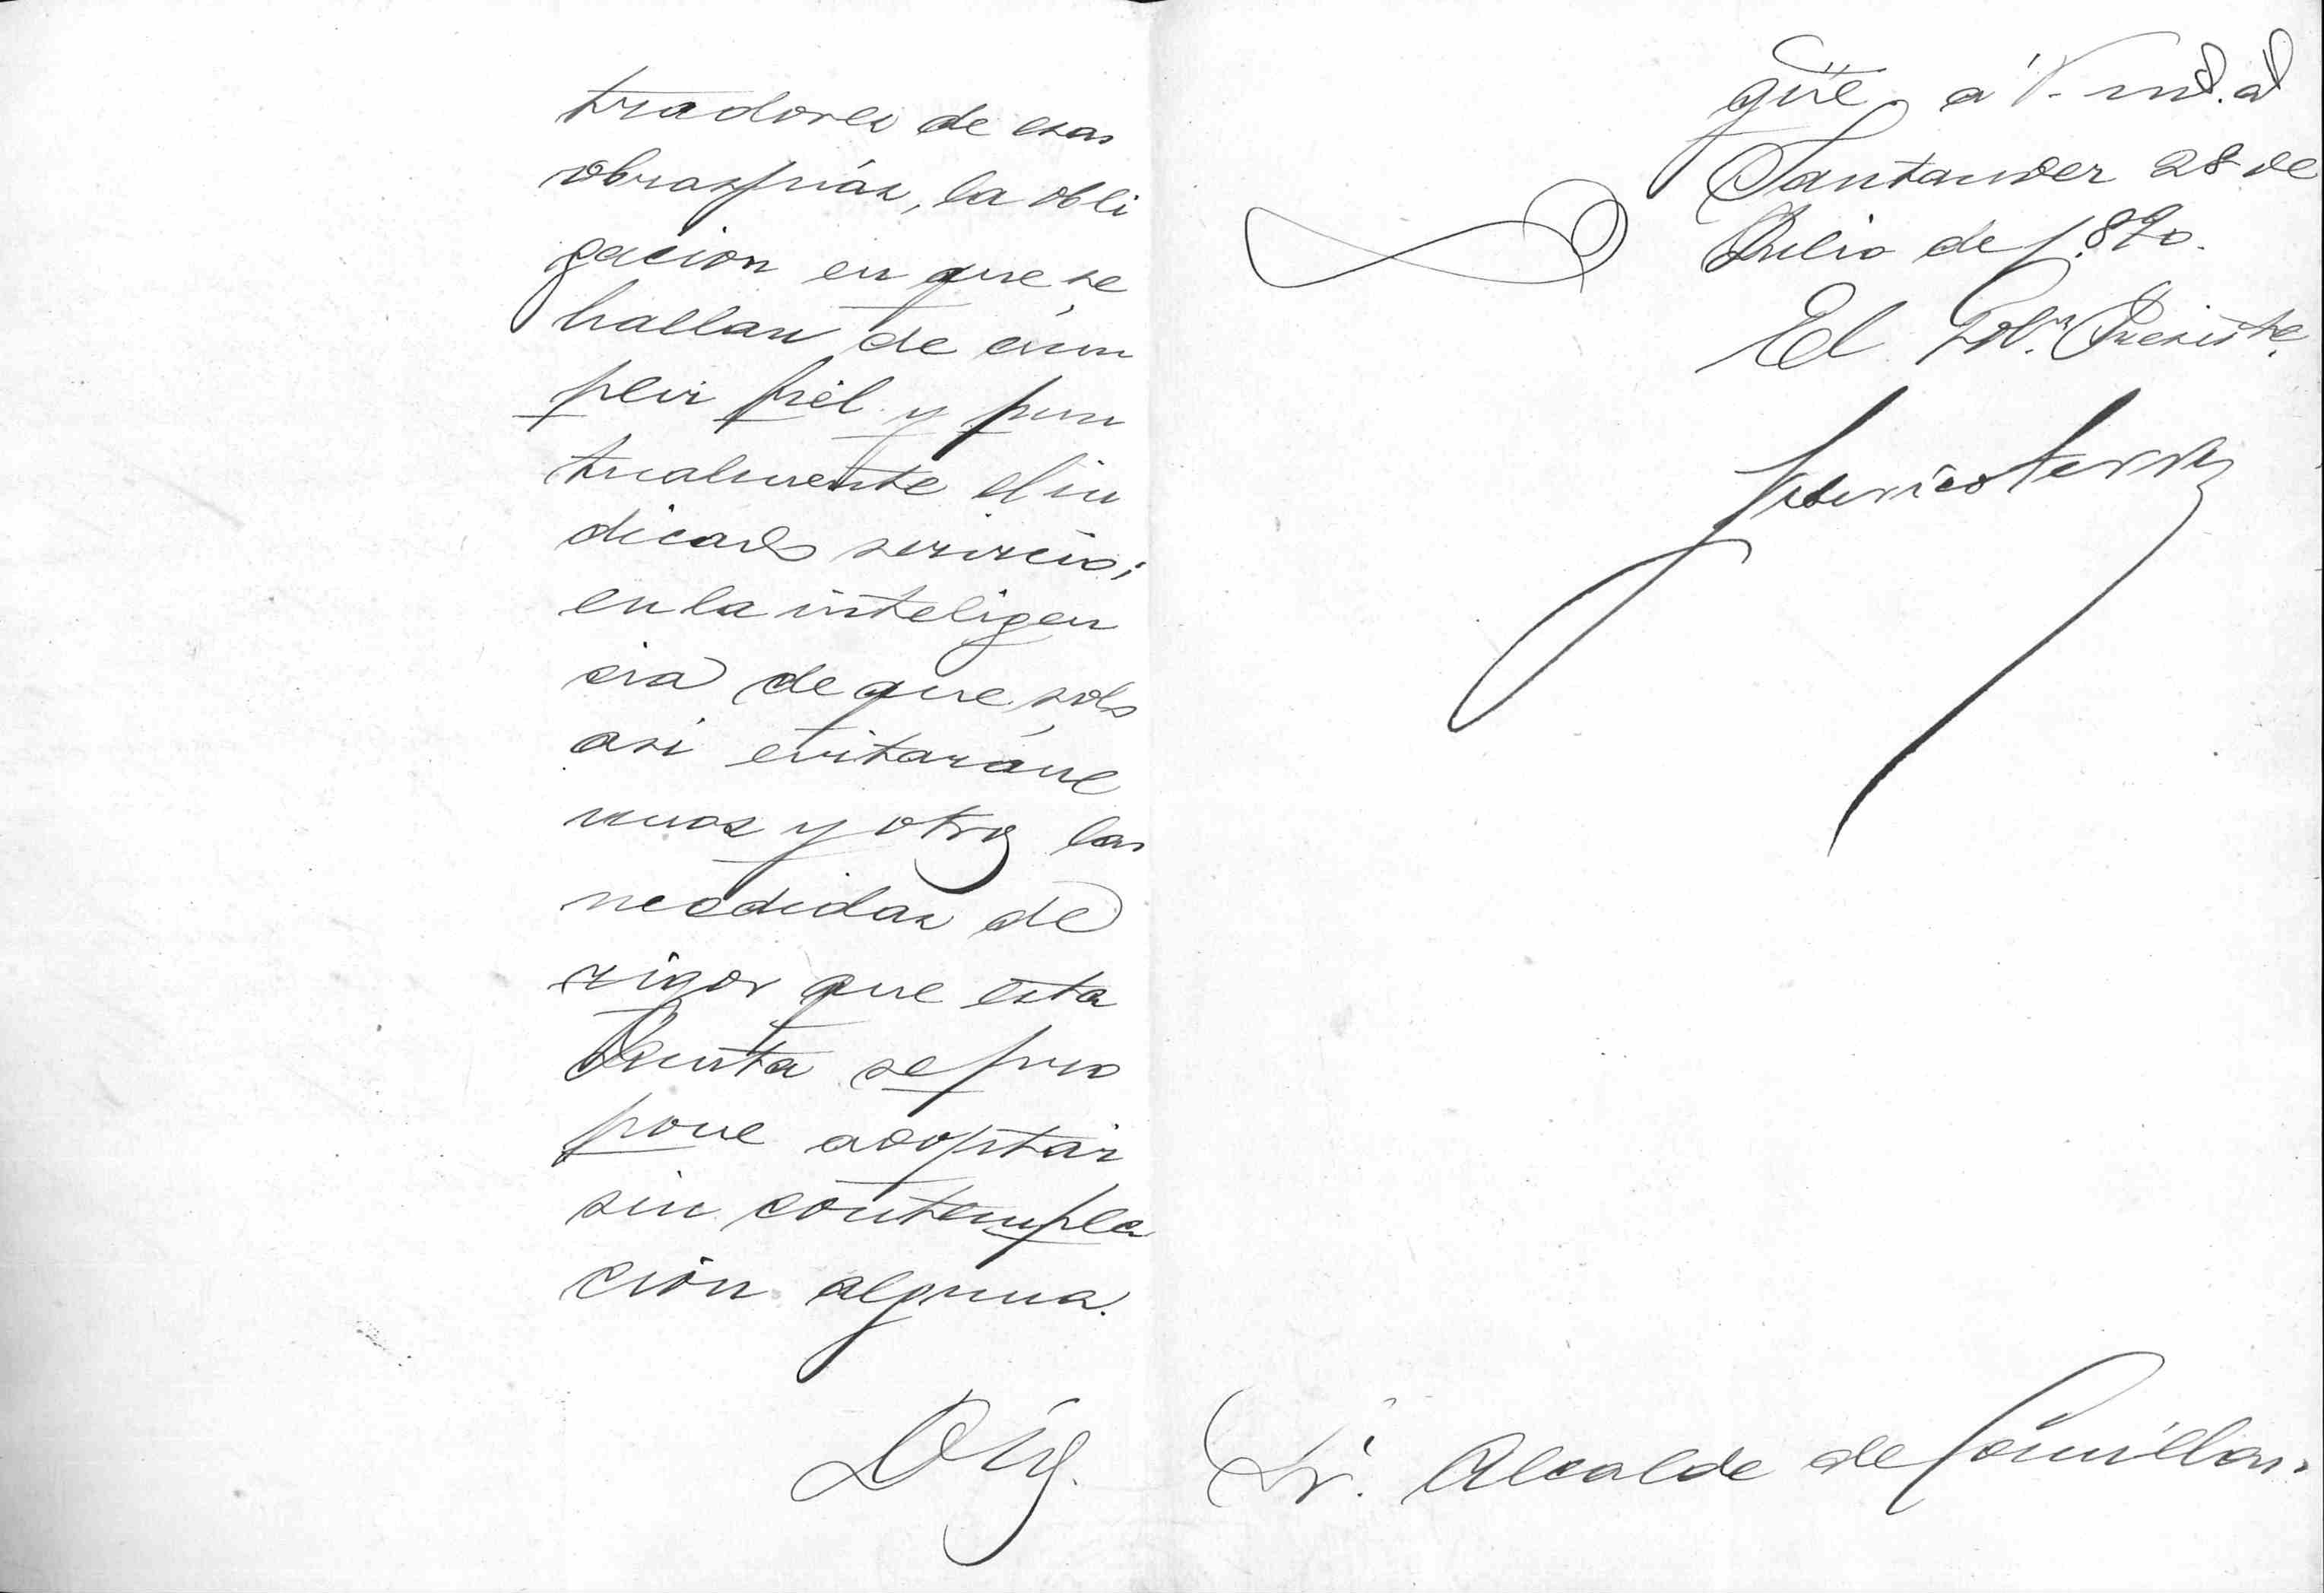 tradores de esas
obraspías, la obli
gacion en que se
hallan de cum
plir fiel y pun
tualmente el in
dicado servicio;
en la inteligen
cia de que solo
asi evitarán
unos y otros las
medidas de
rigor que esta
Junta se pro
pone adoptar
sin contempla
ción alguna.
Dios
güe á V. ms. as
Santander 28 de
Julio de 1.890.
El Gobr. Presidte.
Federico Terrer
Sr. Alcalde de Comillas.